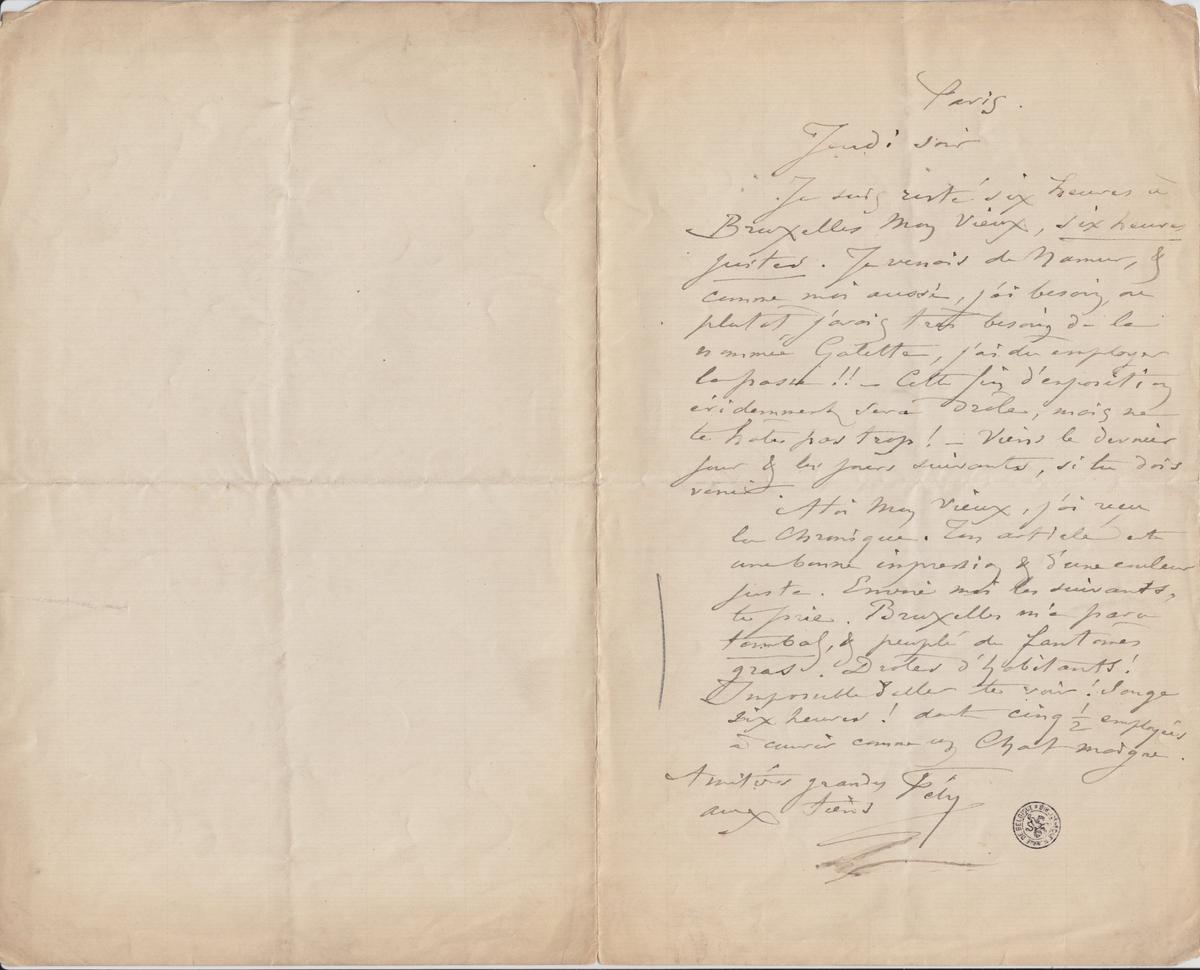 Paris.
Jeudi soir
Je suis resté six heures à
Bruxelles Mon Vieux, six heures
justes. Je venais de Namur, &
comme moi aussi, j'ai besoin, ou
plutot j'avais très besoin de la
nommée Galette, j'ai du employer
la passe !! — Cette fin d'exposition
évidemment sera drôle, mais ne
te hates pas trop ! — Viens le dernier
jour & les jours suivants, si tu dois
venir.
A toi Mon Vieux, j'ai reçu
la Chronique. Ton article est
une bonne impression & d'une couleur
juste. Envoie moi les suivants,
te prie. Bruxelles m'a paru
tombal, & peuplé de fantômes
gras. Drôles d'habitants !
Impossible d'aller te voir ! Songe
six heures ! dont cinq ½ employées
à courir comme un Chat maigre.
Amitiés grandes Fély
aux tiens